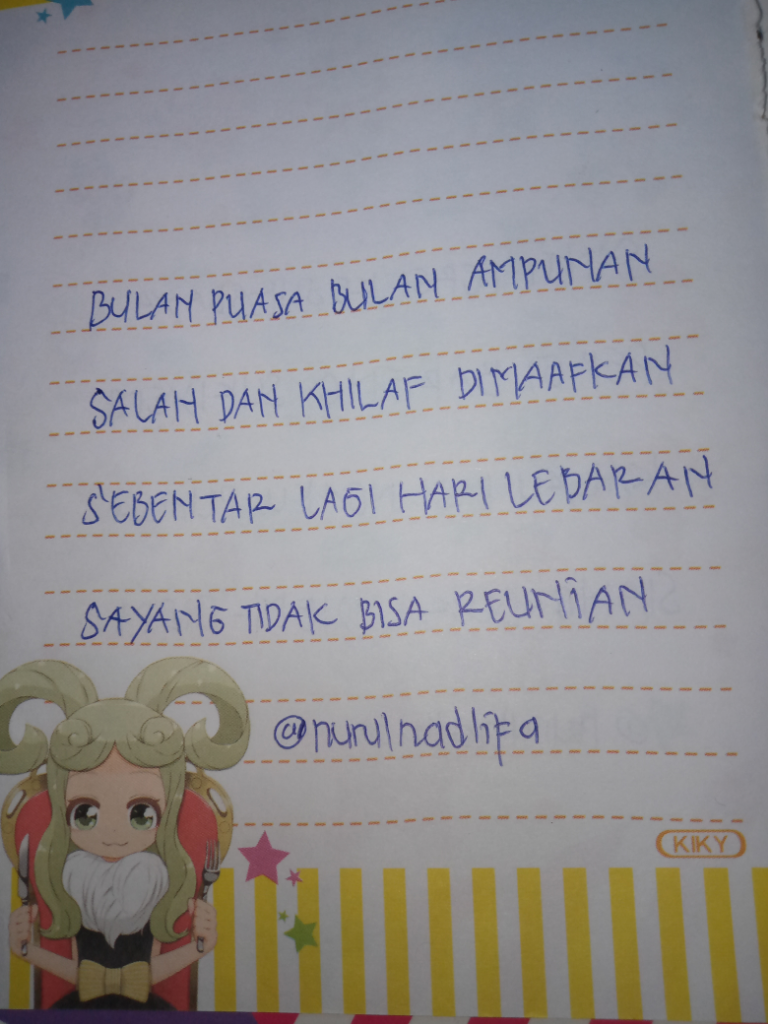 BULAN PUASA BULAN AMPUNAN
SALAH DAN KHILAF DIMAAFKAN
SEBENTAR LAGI HARI LEBARAN
SAYANG TIDAK BISA REUNIAN
@nurulnadlifa
KIKY